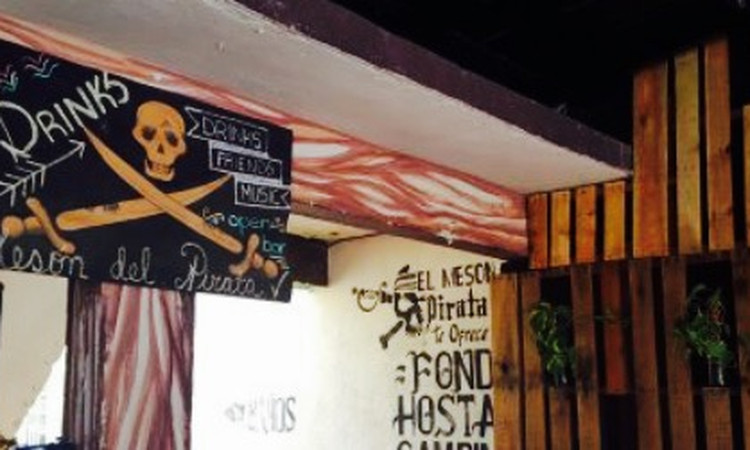 DRINKS
DRINKS
FRIENDS
MUSIC
open
bar
Meson del Pirata
EL MESON
Pirata
te Ofrece
FOND
HOSTA
CAMPIN